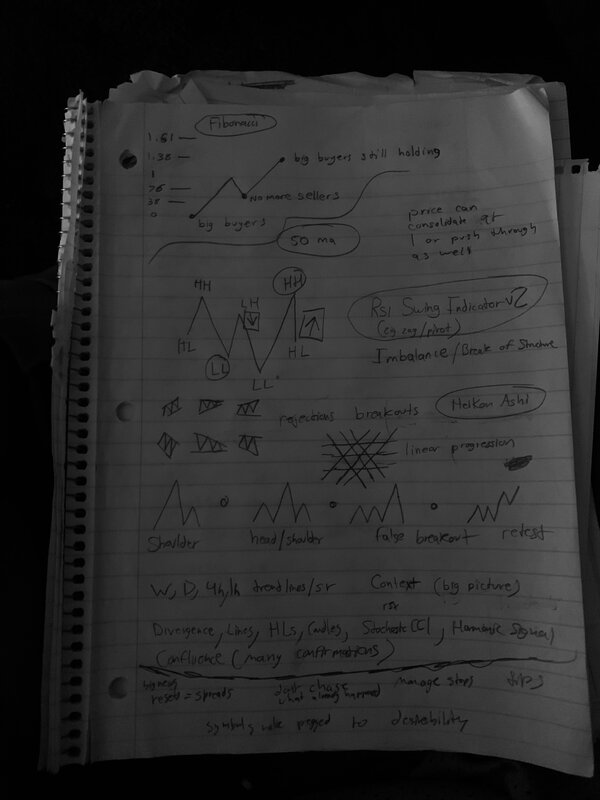 Fibonacci
1.61 —
1.38 —
1
76 —
38 —
0
big buyers still holding
No more sellers
big buyers
50 ma
price can
consolidate at
1 or push through
as well
HH
LH
HH
HL
LL
HL
LL
RSI Swing Indicator v2
(zig zag/pivot)
Imbalance/Break of Structure
rejections breakouts
Heikan Ashi
linear progression
Shoulder
head/shoulder
false breakout
retest
W, D, 4h, 1h trendlines/sr
Context (big picture)
Divergence, Lines, HLs, Candles, Stochastic CCI, Harmonic
Confluence (many confirmations)
resets = spreads
dont chase
what already happened
manage stops
pegged to desirability